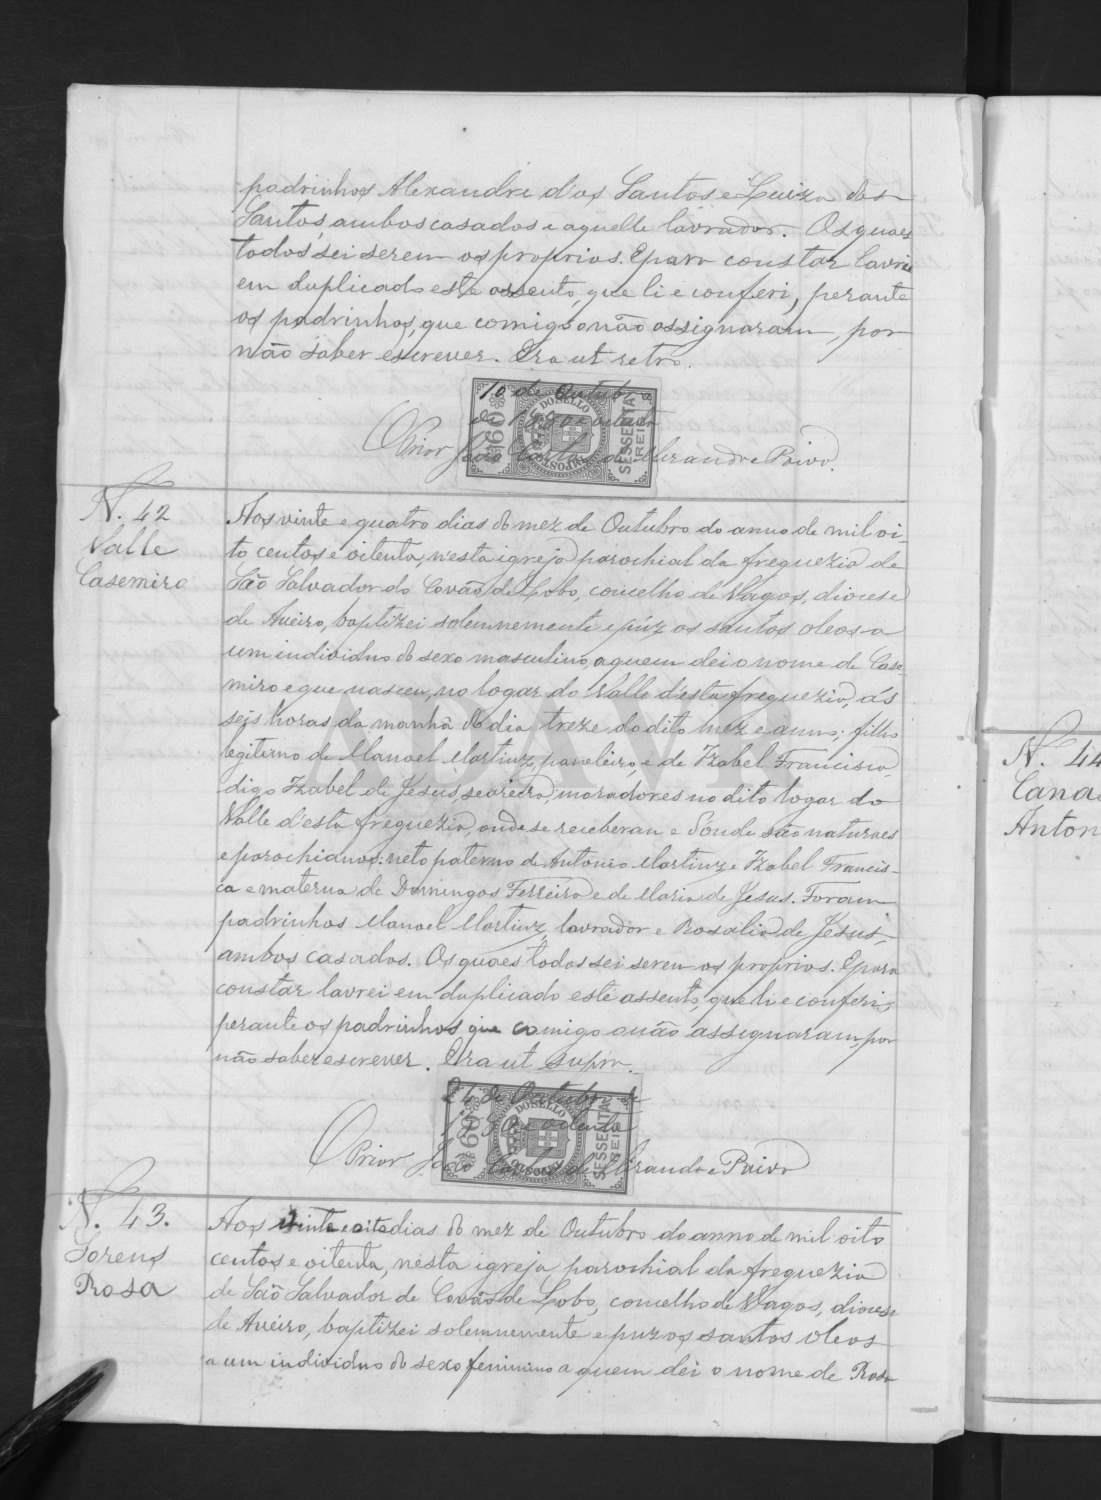 padrinhos Alexandre d'os Santos e Luiza dos
Santos, ambos casados e aquelle lavrador. Os quaes
todos sei serem os proprios. E para constar lavrei
em duplicado este assento, que li e conferi, perante
os padrinhos, que comigo não assignaram por
não saber escrever. Era ut retro.
10 de Outubro
de 1880 e oitenta
O Prior João Carlos de Miranda e Paiva.
N. 42
Valle
Casemiro
Aos vinte e quatro dias do mez de Outubro do anno de mil oi-
to centos e oitenta, n'esta igreja parochial da freguezia de
São Salvador do Covão de Lobo, concelho de Vagos, diocese
de Aveiro, baptizei solemnemente e púz os santos oleos a
um individuo do sexo masculino, a quem dei o nome de Case-
miro e que nasceu, no logar do Valle d'esta freguezia, ás
seis horas da manhã do dia treze do dito mez e anno; filho
legitemo de Manoel Martinz, paneleiro, e de Izabel Francisca,
digo Izabel de Jesus, seareira, moradores no dito logar do
Valle d'esta freguezia, onde se receberam e d'onde são naturaes
e parochianos: neto paterno de Antonio Martinz e Izabel Francis-
ca e materno de Domingos Ferreira e de Maria de Jesus. Foram
padrinhos Manoel Martinz, lavrador e Rosalia de Jesus,
ambos casados. Os quaes todos sei serem os proprios. E para
constar lavrei em duplicado este assento, que li e conferi,
perante os padrinhos que comigo o não assignaram, por
não saber escrever. Era ut supra.
24 de Outubro de
1880 e oitenta
O Prior João Carlos de Miranda e Paiva
N. 43.
Sorens
Rosa
Aos vinte e oito dias do mez de Outubro do anno de mil oito
centos e oitenta, nesta igreja parochial da freguezia
de São Salvador de Covão de Lobo, concelho de Vagos, diocese
de Aveiro, baptizei solemnemente e puz os santos oleos
a um individuo do sexo feminino a quem dei o nome de Rosa
N. 44
Anton